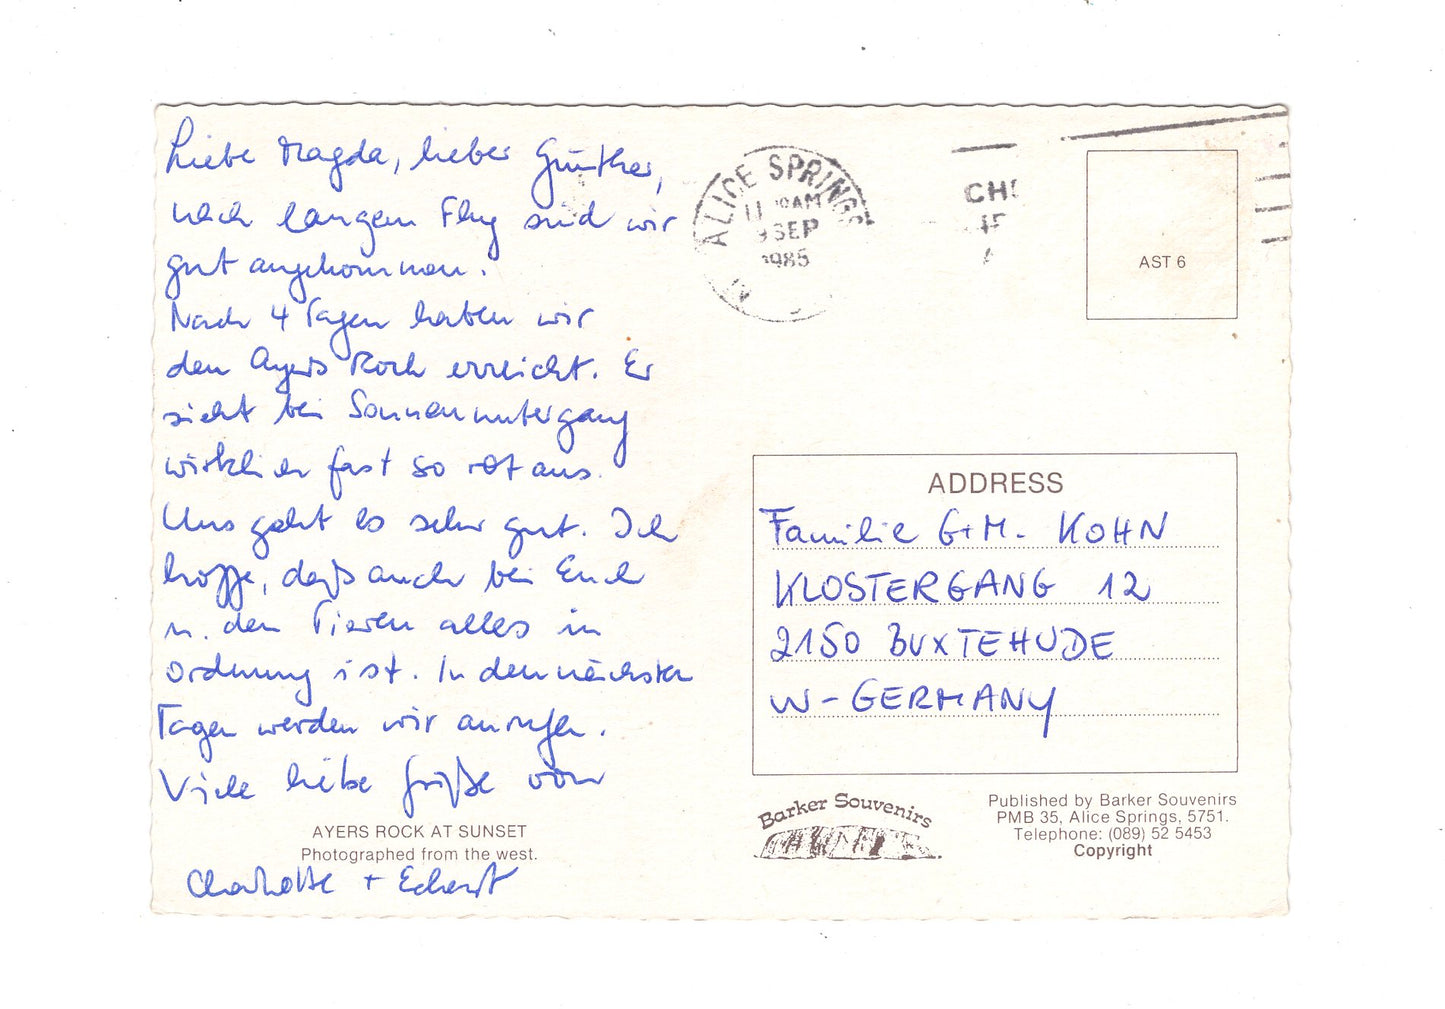 Liebe Magda, lieber Günther,
nach langem Flug sind wir
gut angekommen.
Nach 4 Tagen haben wir
den Ayers Rock erreicht. Er
sieht bei Sonnenuntergang
wirklich fast so rot aus.
Uns geht es sehr gut. Ich
hoffe, daß auch bei Euch
u. den Tieren alles in
Ordnung ist. In den nächsten
Tagen werden wir anrufen.
Viele liebe Grüße von
AYERS ROCK AT SUNSET
Photographed from the west.
Charlotte + Eckhart
ALICE SPRINGS
AM
9 SEP
1985
AST 6
ADDRESS
Familie G+M. KOHN
KLOSTERGANG 12
2150 BUXTEHUDE
W-GERMANY
Barker Souvenirs
Published by Barker Souvenirs
PMB 35, Alice Springs, 5751.
Telephone: (089) 52 5453
Copyright